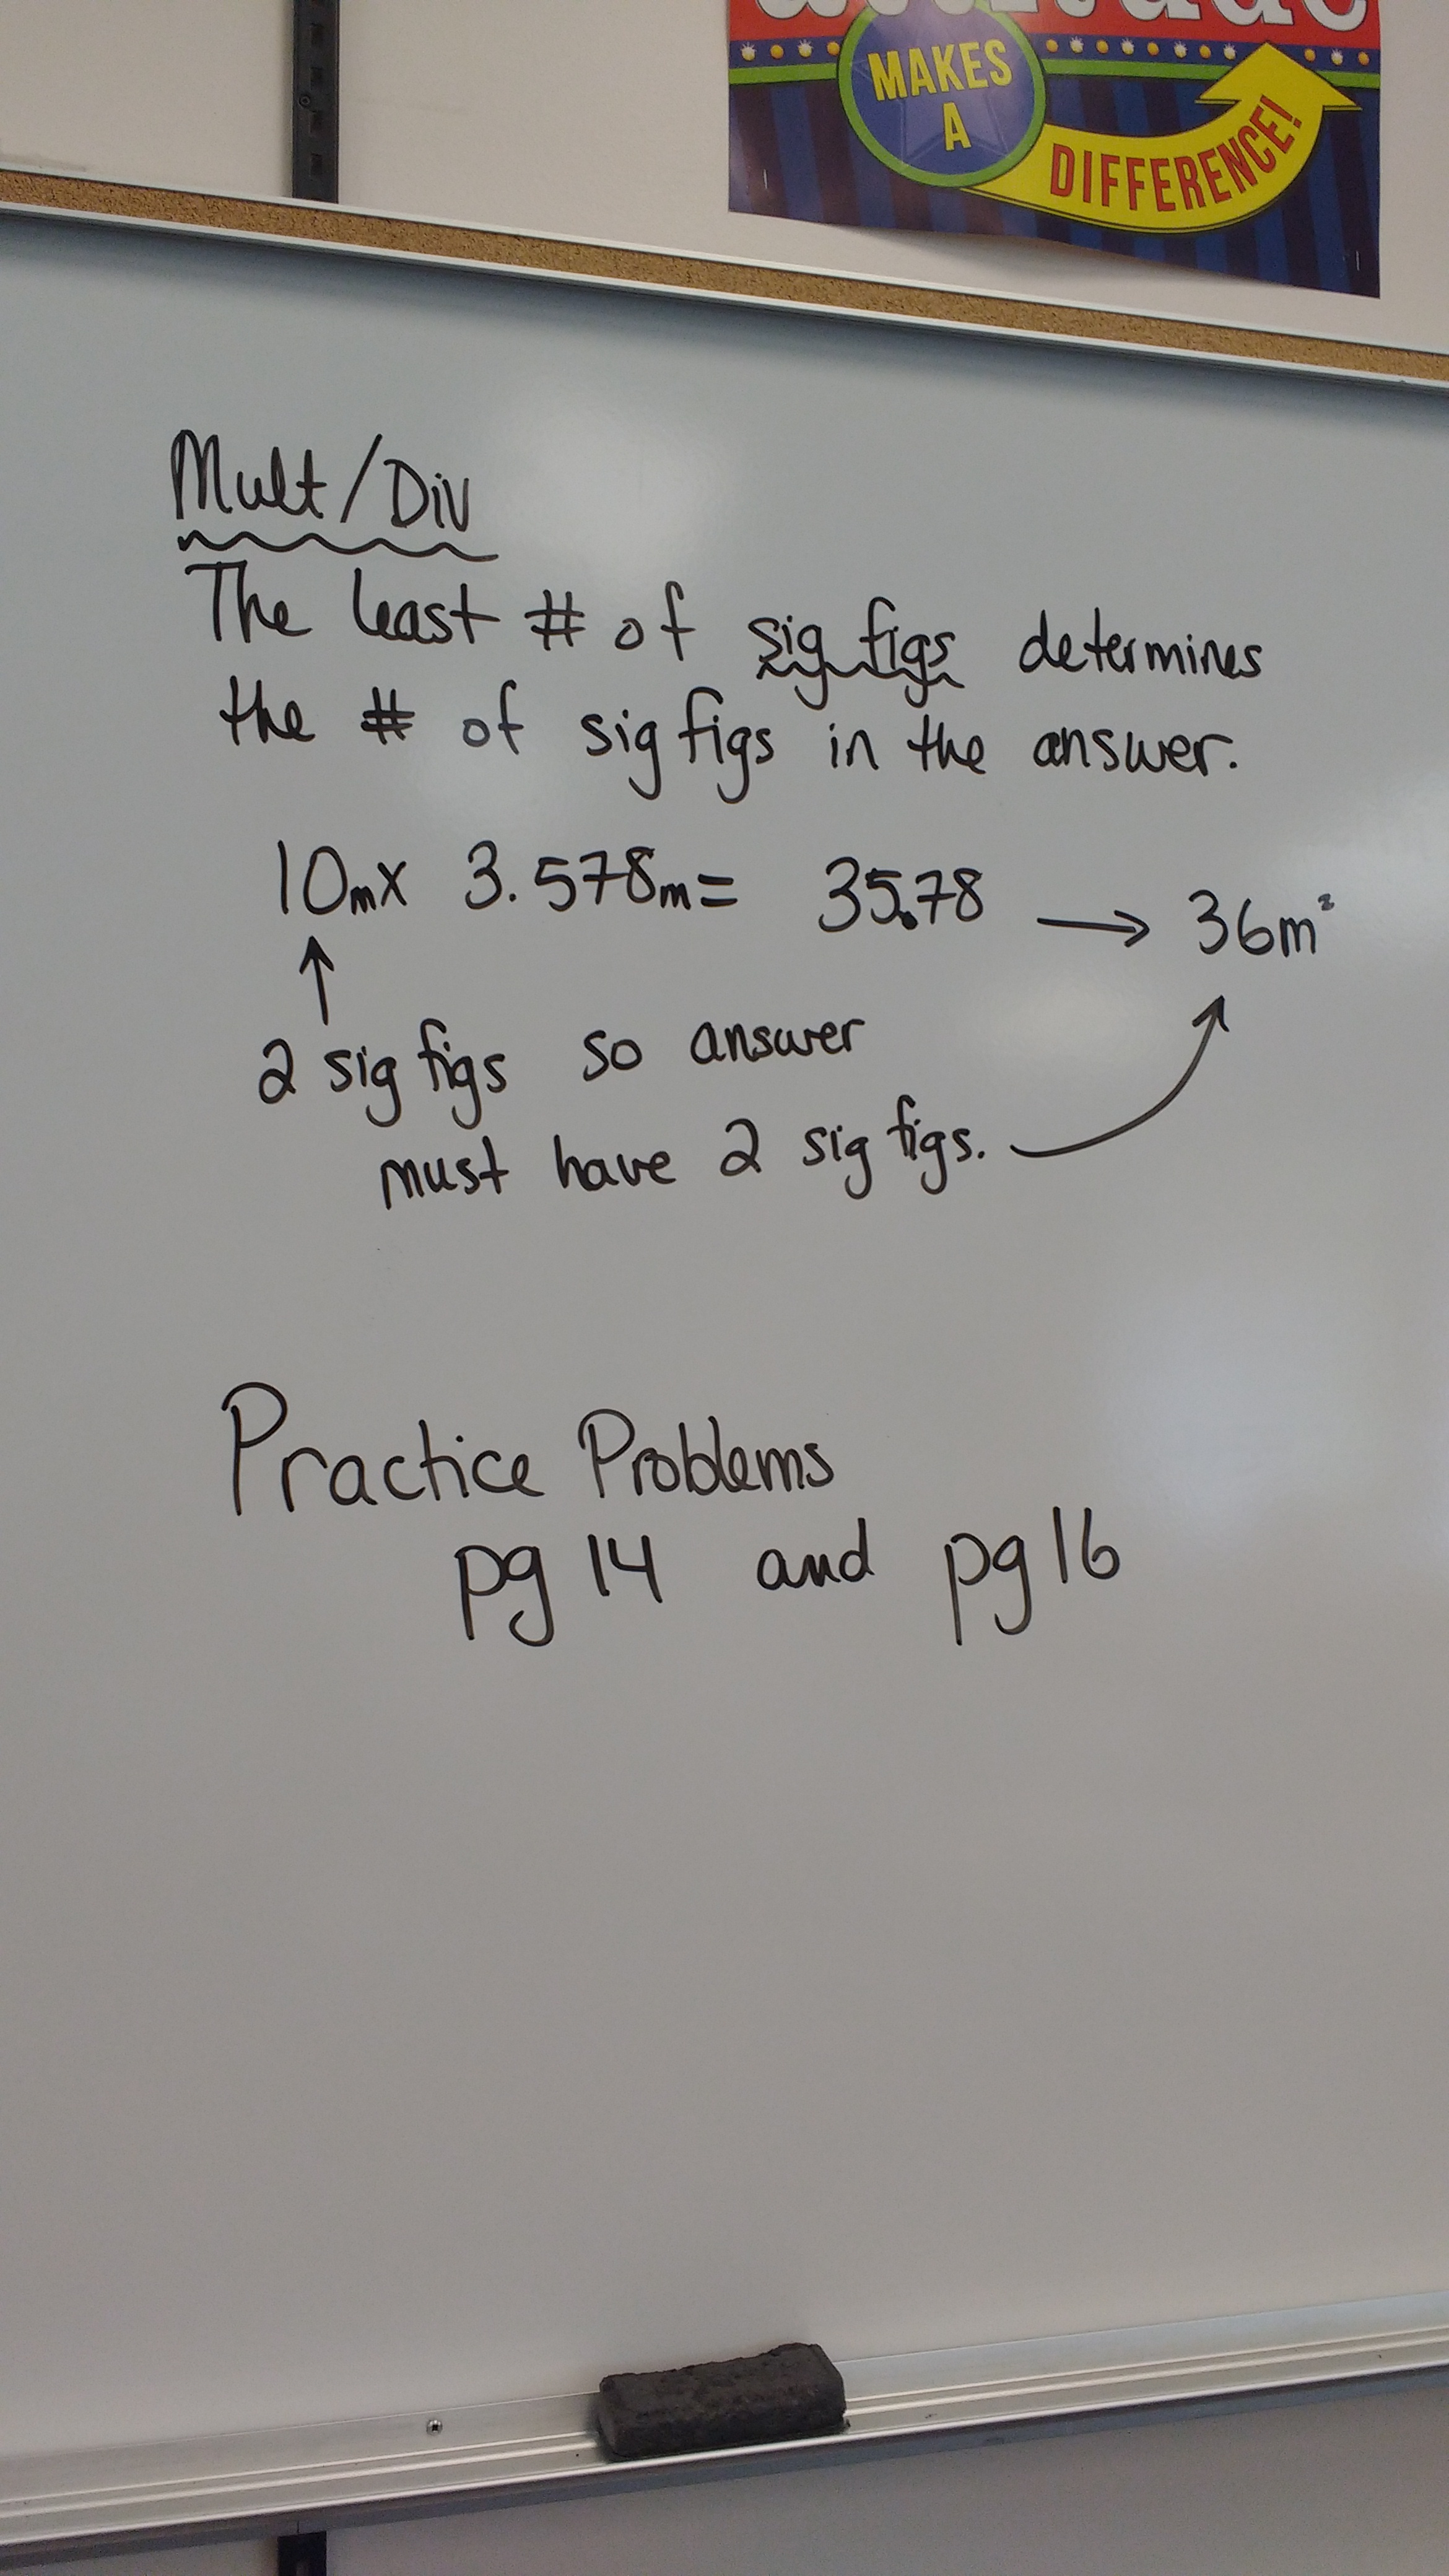 attitude
MAKES
A
DIFFERENCE!
Mult/Div
The least # of sig figs determines
the # of sig figs in the answer.
10m x 3.578m = 35.78 → 36m²
2 sig figs so answer
must have 2 sig figs.
Practice Problems
pg 14 and pg 16